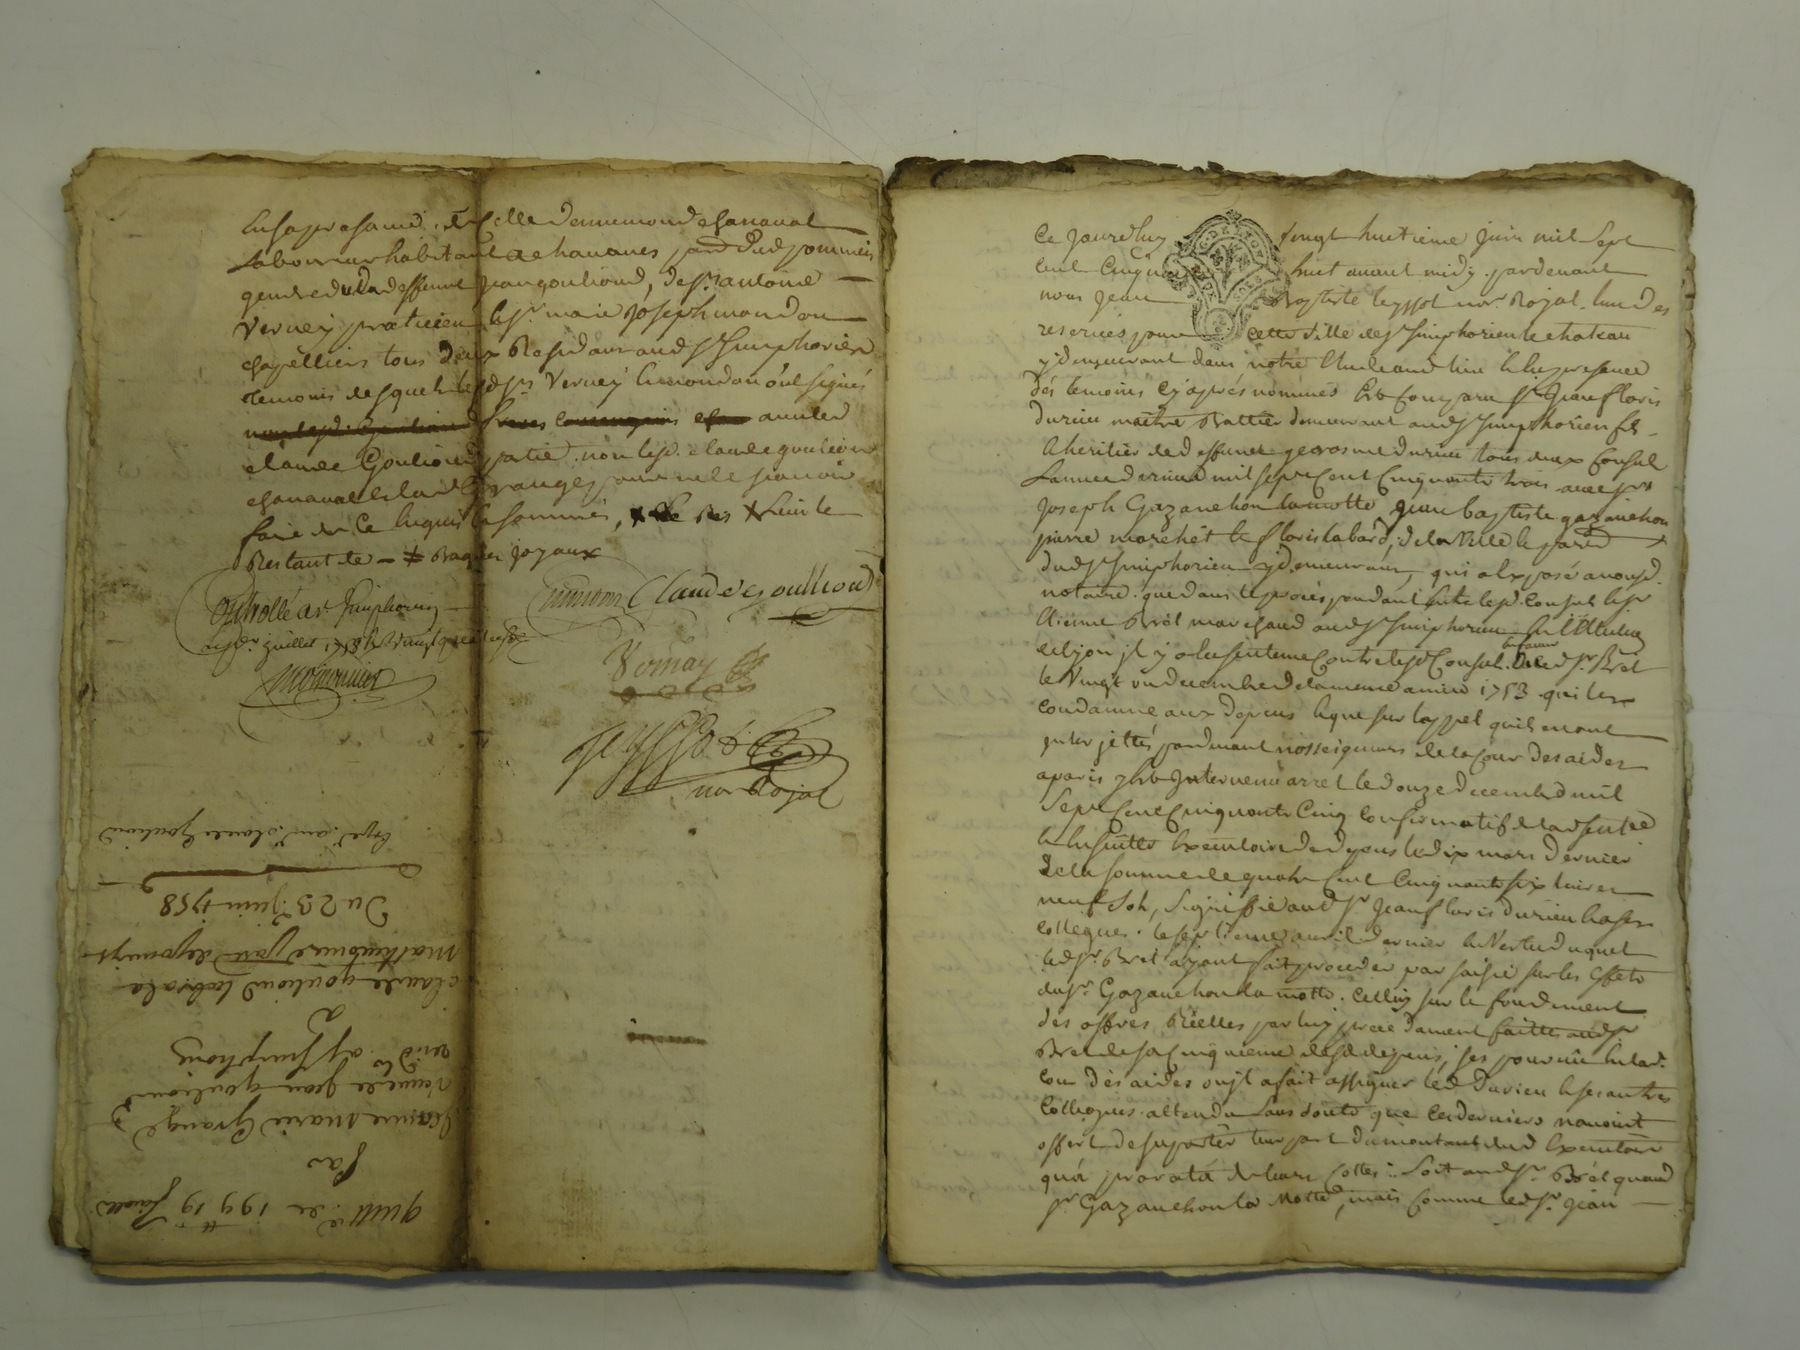 En sa presance, Et celle dennemond chanaval
Laboureur habitant de chavanes parr. dud pommeis
gendre dud deffunt jean goulioud, de sr. antoine
Verney praticien le sr. marie joseph mondon
chapellier tous deux Residants aud st. simphorien
temoins lesquels lesd. srs Verney & mondon ont signés
annuler
claude Goulioud partie non lesd. claude goulioud
chanaval & lad. Grange pour ne le scavoir
faire de ce Enquis & sommés,
Restant de - # Bagues joyaux
Controllé a st. simphorien
Claude goullioud
Vernay
not Royal
Exp. aud. claude Goulioud
Du 23. Juin 1758
claude goulioud
Jeanne Marie Grange
Veuve de Jean goulioud
a st. simphorien
Par
quitt.ce de 199 tt 19 s
Ce Jourdhuy vingt huitieme Juin mil Sept
Cent Cinquante huit avant midy. pardevant
nous Jean Baptiste teyssot nore. Royal. lun des
reservés pour cette ville de st. simphorien le chateau
y demeurant dans notre Etude aud lieu & En presence
des temoins cy après nommés Est Comparu sr. Jean floris
durieu maitre Battier demeurant aud st. simphorien fils
& heritier de deffunt gerosme durieu tous deux Consul
Lannee derniere mil sept Cent Cinquante trois avec srs
Joseph Gazanchon lamotte, jean baptiste gazanchon
pierre marchet & floris labard, de la Ville & parr.
dud st. simphorien y demeurant, qui a Exposé a nousd.
notaire. que dans le procès pendant Entre lesd. Consuls & sr.
Etienne Brèt marchand aud st. simphorien En l'Election
de Lyon jl y a Eu sentence Contre lesd Consuls. En faveur dud sr. Bret
le Vingt un decembre de la meme année 1753 qui les
condamne aux depens & que sur l'appel quils en ont
jnterjettés pardevant nosseigneurs de la Cour des aides
a paris y Est jntervenu arret le douze decembre mil
Sept Cent Cinquante Cinq confirmatif de lad sentce
& Ensuitte Executoire de depens le dix mars dernier
De la somme de quatre Cent Cinquante six livres
neuf sols, signiffié aud sr. Jean floris durieu & a ses
collegues. le septieme avril dernier En Vertu duquel
led sr. Bret ayant fait proceder par saisie sur les Effets
du sr. Gazanchon la motte. Celluy sur le fondement
des offres Réelles par luy precedament faittes aud sr.
Bret de sa cinquieme desd depens, sest pourvû En lad.
cour dès aides ou jl a fait assigner led Durieu & ses autres
Collegues. attendu sans doute que ces derniers navoint
offert de suporter leur part du montant dud Executoire
qu'á prorata de leurs Cottes. Soit aud sr. Brèt quaud
sr. Gazanchon la Motte, mais Comme led sr. Jean